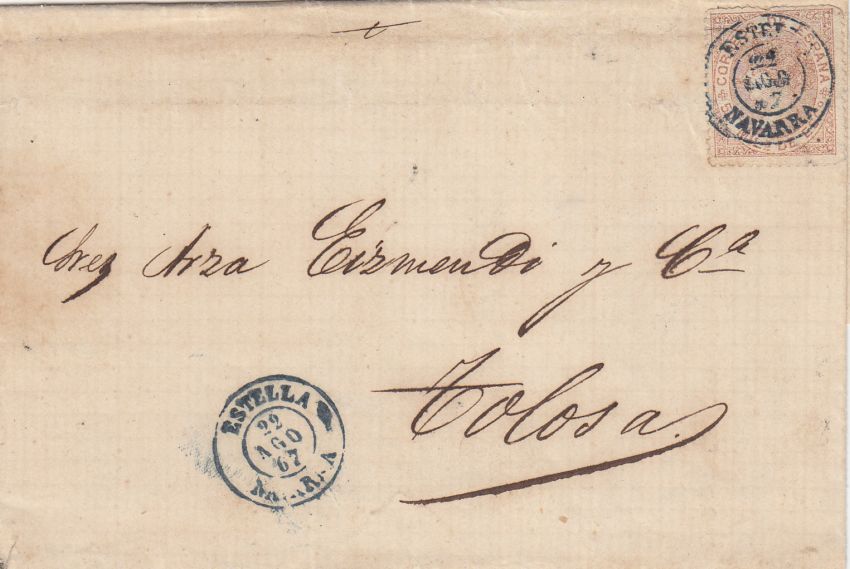 CORREOS ESPAÑA
ESTE
22
AGO
67
NAVARRA
Sres Arza Eizmendi y Cª
Tolosa
ESTELLA
22
AGO
67
NAVARRA